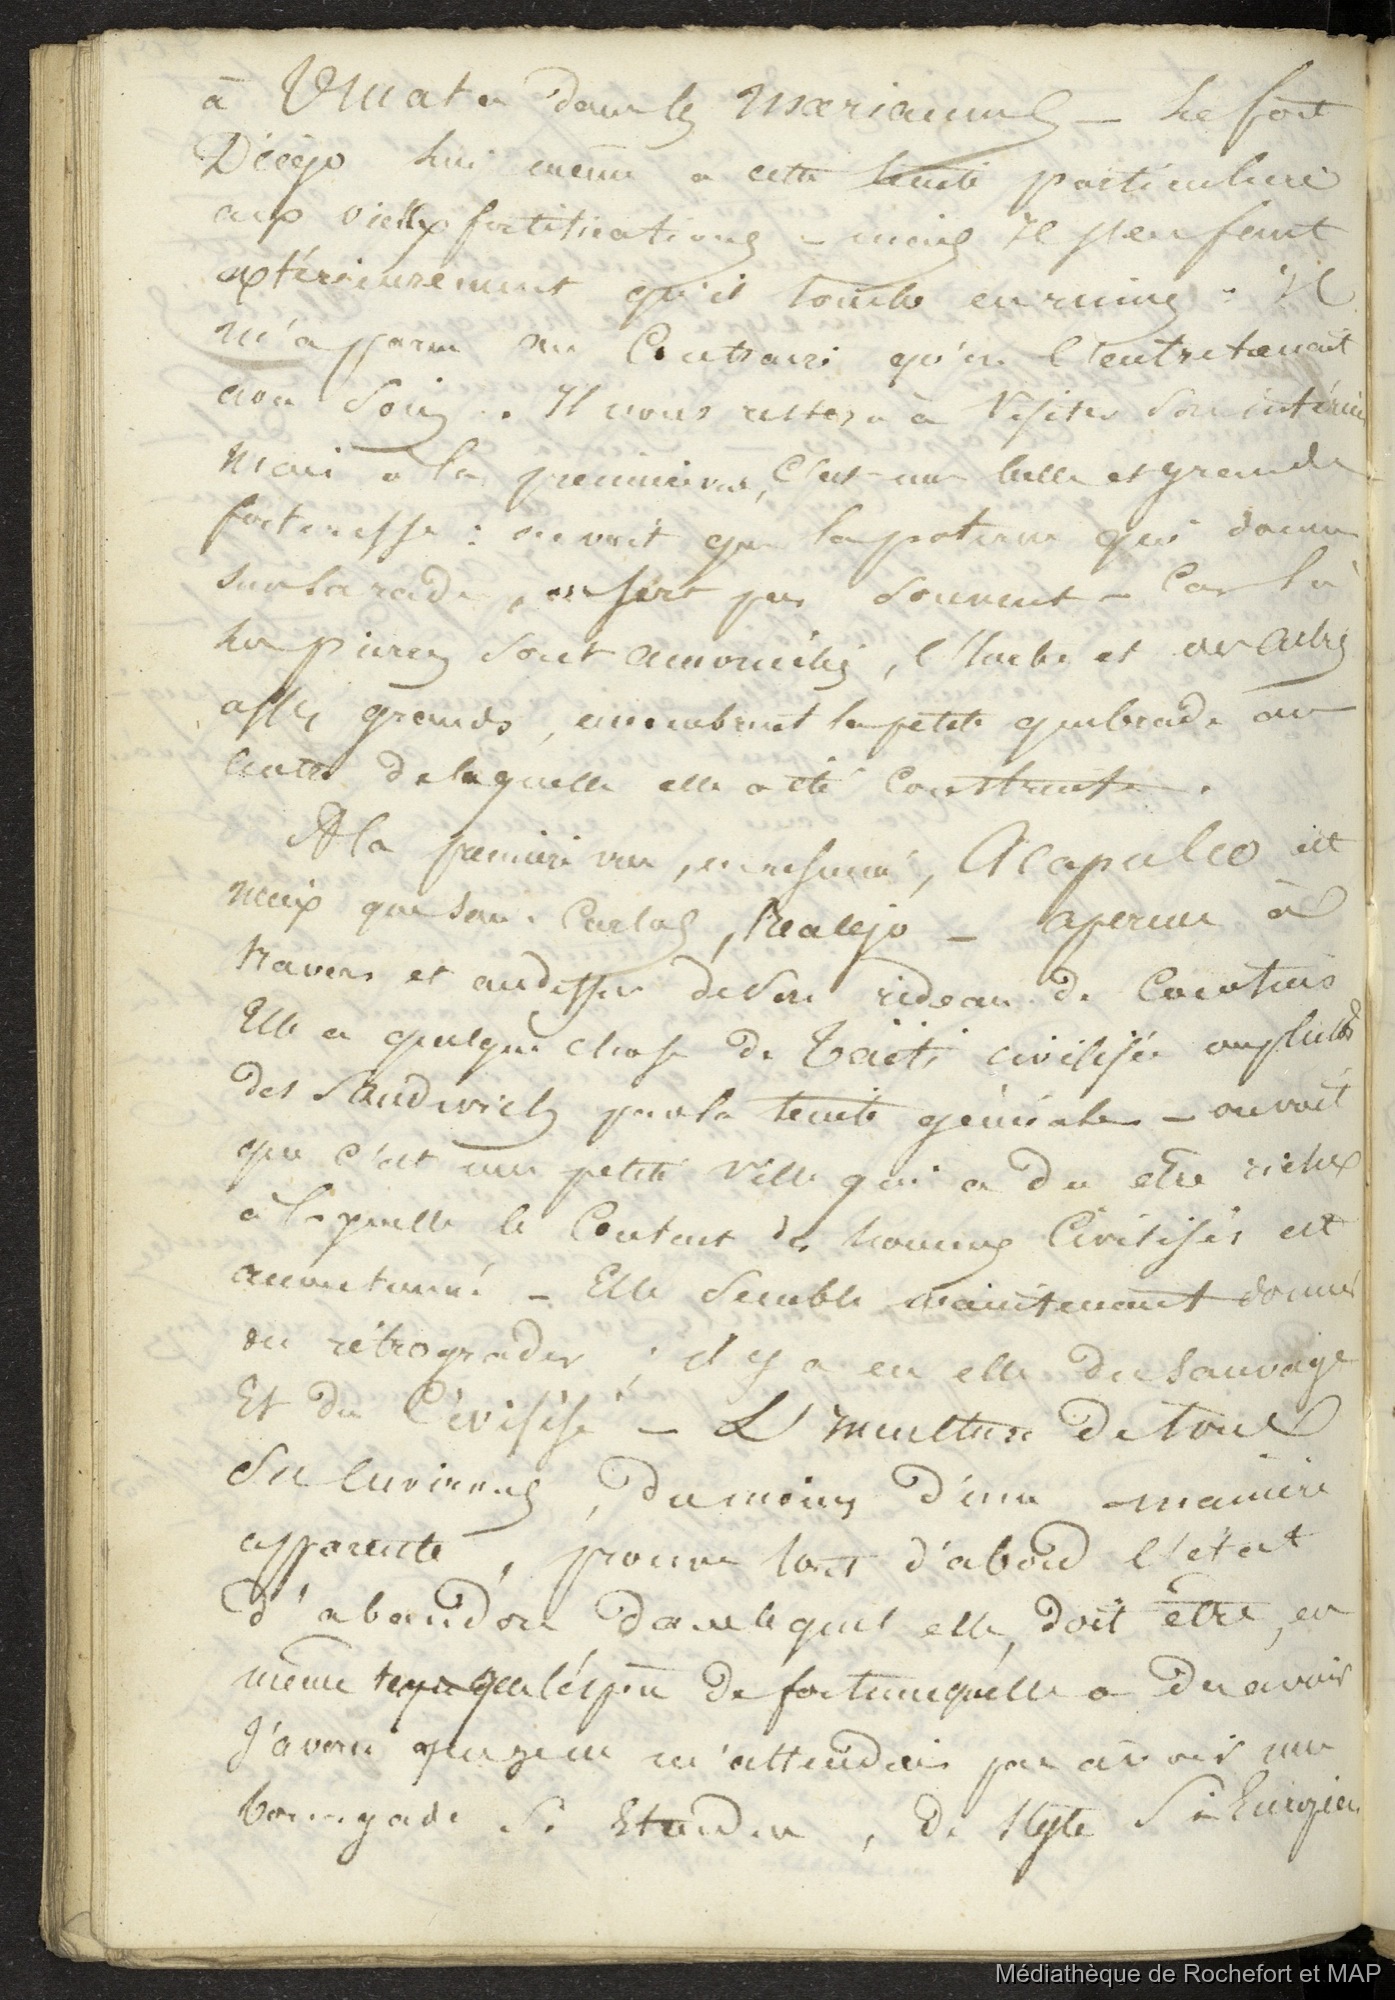 à Umata dans les Mariannes — Le fort
Diégo lui même a cette teinte particulière
aux vielles fortifications — mais il s'en faut
extérieurement qu'il tombe en ruines : il
m'a paru au Contraire qu'on l'entretenait
avec Soin . Il nous restera à Visiter Son intérieur
Mais a la première vue, C'est une belle et grande
forteresse : on voit que la poterne qui donne
sur la rade, ne sert pas Souvent — Car là
les pierres Sont amoncelées, l'herbe et des arbres
assez grands, encombrent la petite quebrade au
centre de laquelle elle a été Construite .
A la première vue, en résumé, Acapulco est
mieux que San Carlos, Realejo — aperçue à
travers et au dessus de Son rideau de Cocotiers
Elle a quelque chose de Taïti civilisée ou plutôt
des Sandwich par la teinte générale — on voit
que c'est une petite Ville qui a du etre riche
à laquelle le Contact des hommes Civilisés est
accoutumé — Elle Semble maintenant
ou rétrograder ; il y a en elle du Sauvage
Et du Civilisé — L'inculture de tous
Ses Environs, du moins d'une manière
apparente, prouve tout d'abord l'état
d'abandon dans lequel elle doit être, en
même temps que le peu de fortune qu'elle a du avoir
J'avoue que je ne m'attendais pas à voir une
bourgade Si Etendue, de Style Si
Médiathèque de Rochefort et MAP